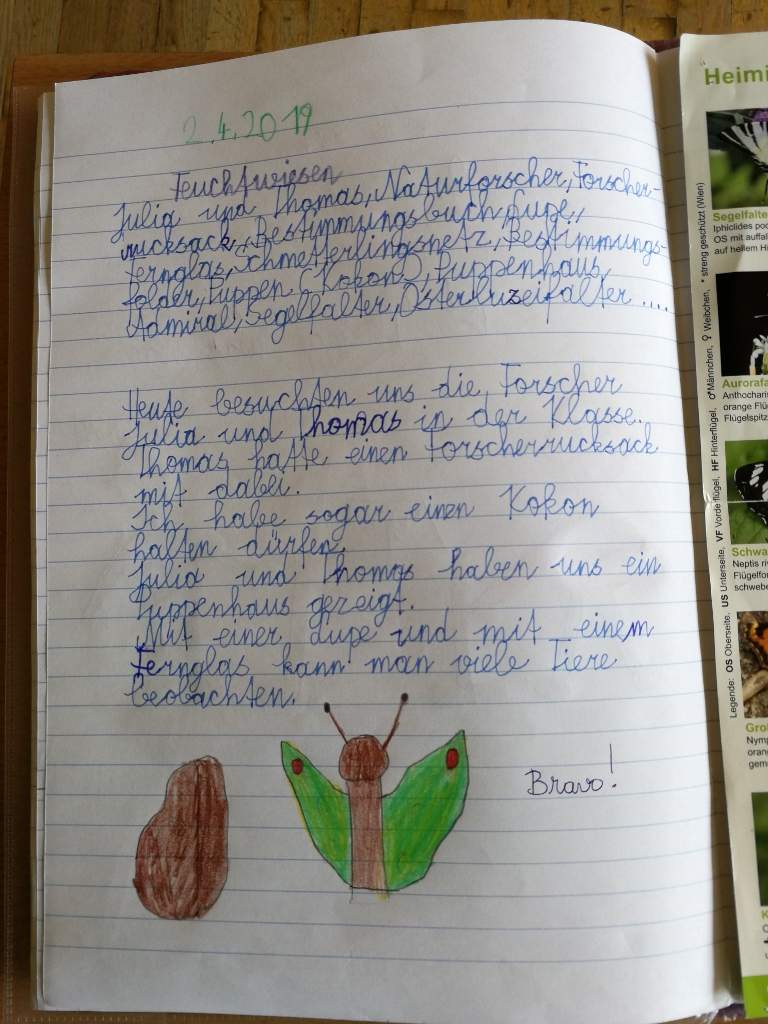 2.4.2019
Feuchtwiesen
Julia und Thomas, Naturforscher, Forscher-
rucksack, Bestimmungsbuch, Lupe,
Fernglas, Schmetterlingsnetz, Bestimmungs-
folder, Puppen (Kokon), Puppenhaus,
Admiral, Segelfalter, Osterluzeifalter ....
Heute besuchten uns die Forscher
Julia und Thomas in der Klasse.
Thomas hatte einen Forscherrucksack
mit dabei.
Ich habe sogar einen Kokon
halten dürfen.
Julia und Thomas haben uns ein
Puppenhaus gezeigt.
Mit einer Lupe und mit einem
Fernglas kann man viele Tiere
beobachten.
Bravo!
Heimi
Segelfalte
Iphiclides pod
OS mit auffal
auf hellem Hi
Aurorafa
Anthocharis
orange Flü
Flügelspitz
Schwa
Neptis riv
Flügelfor
schwebe
Gro
Nymp
oran
gem
K
Legende: OS Oberseite, US Unterseite, VF Vorderflügel, HF Hinterflügel, ♂ Männchen, ♀ Weibchen, * streng geschützt (Wien)